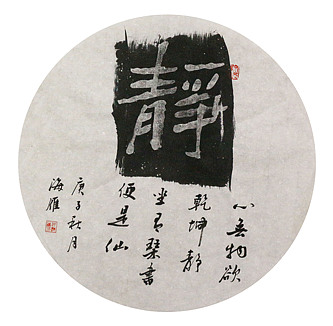 靜
心無物欲
乾坤靜
坐有琴書
便是仙
庚子秋月
海雁